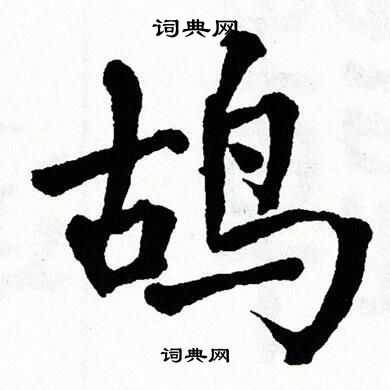 词典网
鸪
词典网